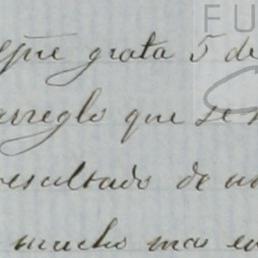 FU
grata 5 de
arreglo que se
resultado de un
mucho mas en